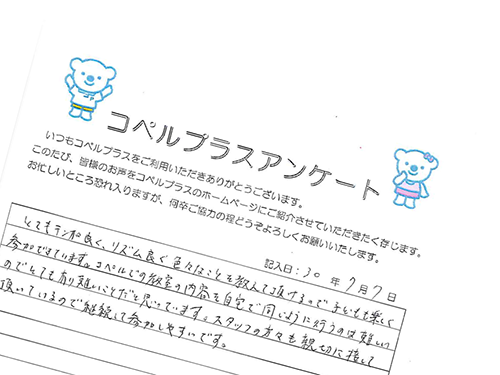 コペルプラスアンケート
いつもコペルプラスをご利用いただきありがとうございます。
このたび、皆様のお声をコペルプラスのホームページにご紹介させていただきたく存じます。
お忙しいところ恐れ入りますが、何卒ご協力の程どうぞよろしくお願いいたします。
記入日：30年7月7日
とてもテンポ良く、リズム良く色々なことを教えて頂けるので子どもも楽しく
参加できています。コペルでの教室の内容を自宅で同じように行うのは難しい
のでとても有り難いことだと思っています。スタッフの方々も親切に接して
頂いているので継続して参加しやすいです。